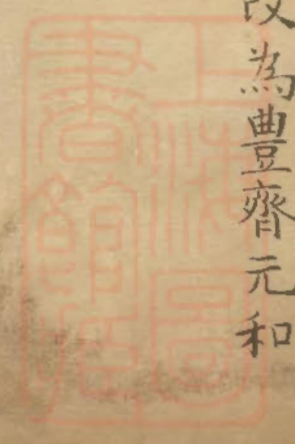 改為豊齊元和
上海圖
書館藏